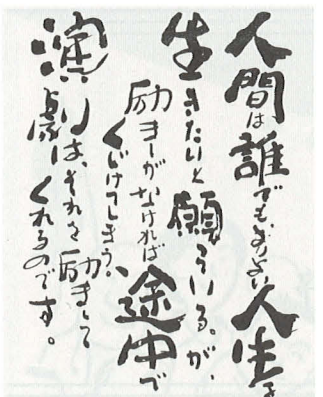 人間は誰でもよりよい人生を
生きたいと願っている。が、
励ましがなければ途中で
くじけてしまう。
演劇は、それを励まして
くれるのです。